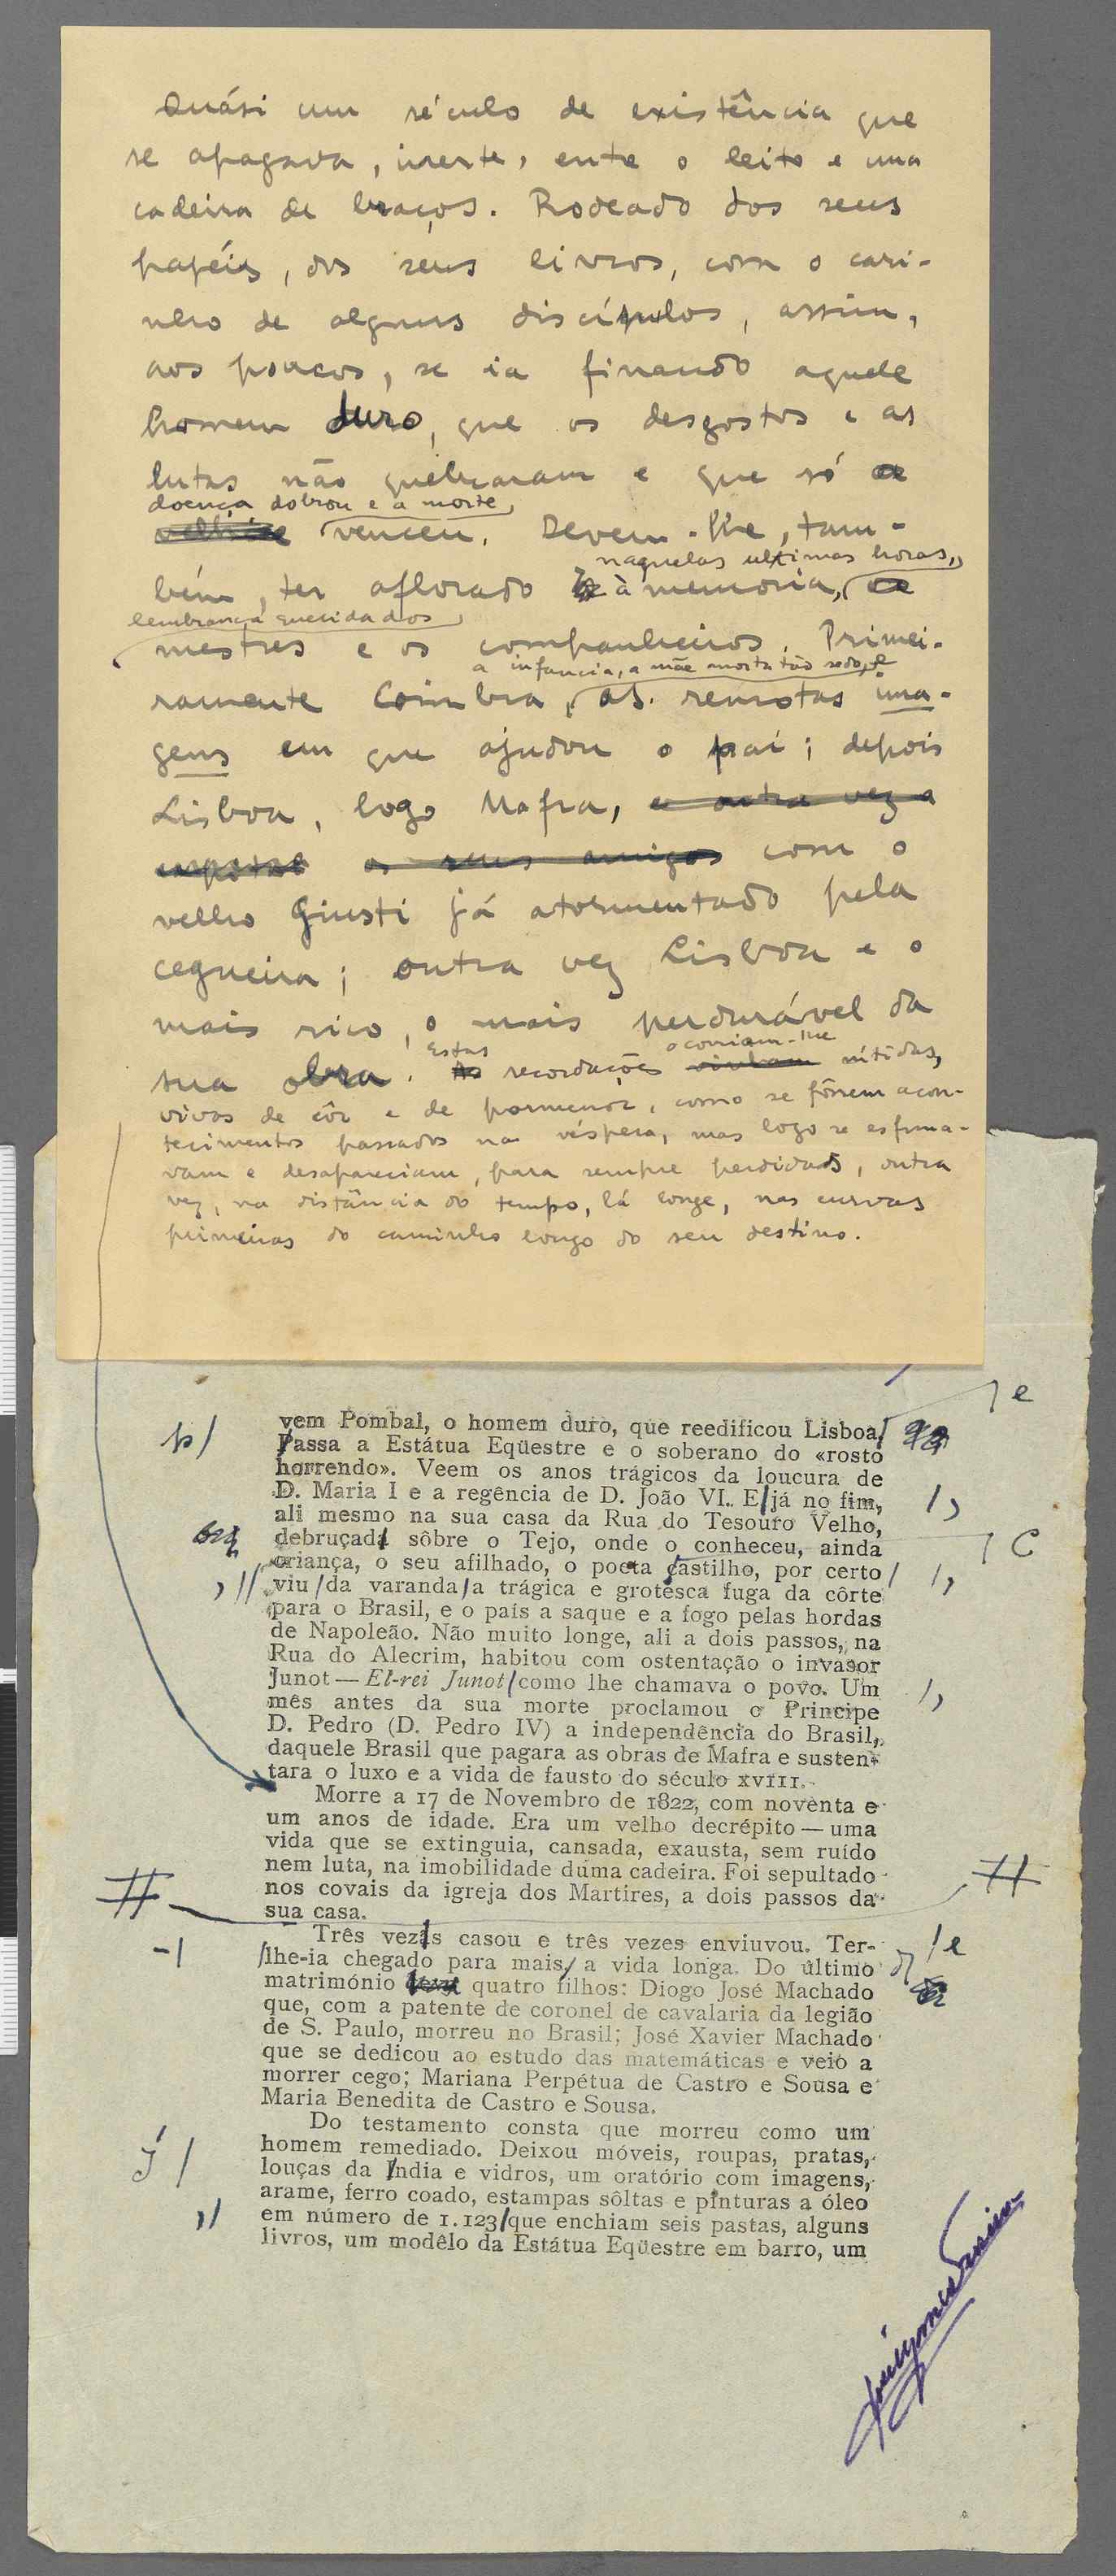 Quási um século de existência que
se apagava, inerte, entre o leito e uma
cadeira de braços. Rodeado dos seus
papéis, dos seus livros, com o cari-
nho de alguns discípulos, assim,
aos poucos, se ia finando aquele
homem duro, que os desgostos e as
lutas não quebraram e que só a
doença dobrou e a morte
velhice venceu. Devem-lhe, tam-
naquelas ultimas horas,
bém, ter aflorado à memoria, a
lembrança querida dos
mestres e os companheiros. Primei-
a infancia, a mãe morta tão cedo, e
ramente Coimbra, as remotas ima-
gens em que ajudou o pai; depois
Lisboa, logo Mafra, e outra vez a
os seus amigos com o
velho Giusti já atormentado pela
cegueira; outra vez Lisboa e o
mais rico, o mais perdurável da
Estas ocorriam-lhe
sua obra. As recordações vinham nítidas,
vivas de côr e de pormenor, como se fôssem acon-
tecimentos passados na véspera, mas logo se esfuma-
vam e desapareciam, para sempre perdidas, outra
vez, na distância do tempo, lá longe, nas curvas
primeiras do caminho longo do seu destino.
e
vem Pombal, o homem duro, que reedificou Lisboa
p/
Passa a Estátua Eqüestre e o soberano do «rosto
horrendo». Veem os anos trágicos da loucura de
D. Maria I e a regência de D. João VI.. E/já no fim, /,
ali mesmo na sua casa da Rua do Tesouro Velho,
debruçada sôbre o Tejo, onde o conheceu, ainda C
criança, o seu afilhado, o poeta castilho, por certo/ /,
,// viu/da varanda/a trágica e grotesca fuga da côrte
para o Brasil, e o país a saque e a fogo pelas hordas
de Napoleão. Não muito longe, ali a dois passos, na
Rua do Alecrim, habitou com ostentação o invasor
Junot — El-rei Junot/como lhe chamava o povo. Um /,
mês antes da sua morte proclamou o Principe
D. Pedro (D. Pedro IV) a independência do Brasil,
daquele Brasil que pagara as obras de Mafra e susten-
tara o luxo e a vida de fausto do século XVIII.
Morre a 17 de Novembro de 1822, com noventa e
um anos de idade. Era um velho decrépito — uma
vida que se extinguia, cansada, exausta, sem ruído
nem luta, na imobilidade duma cadeira. Foi sepultado
# nos covais da igreja dos Martires, a dois passos da #
sua casa.
Três vezes casou e três vezes enviuvou. Ter- /e
-/ /lhe-ia chegado para mais/ a vida longa. Do último
matrimónio quatro filhos: Diogo José Machado
que, com a patente de coronel de cavalaria da legião
de S. Paulo, morreu no Brasil; José Xavier Machado
que se dedicou ao estudo das matemáticas e veio a
morrer cego; Mariana Perpétua de Castro e Sousa e
Maria Benedita de Castro e Sousa.
Do testamento consta que morreu como um
homem remediado. Deixou móveis, roupas, pratas,
Í/ louças da Índia e vidros, um oratório com imagens,
arame, ferro coado, estampas sôltas e pinturas a óleo
,/ em número de 1.123/que enchiam seis pastas, alguns
livros, um modêlo da Estátua Eqüestre em barro, um